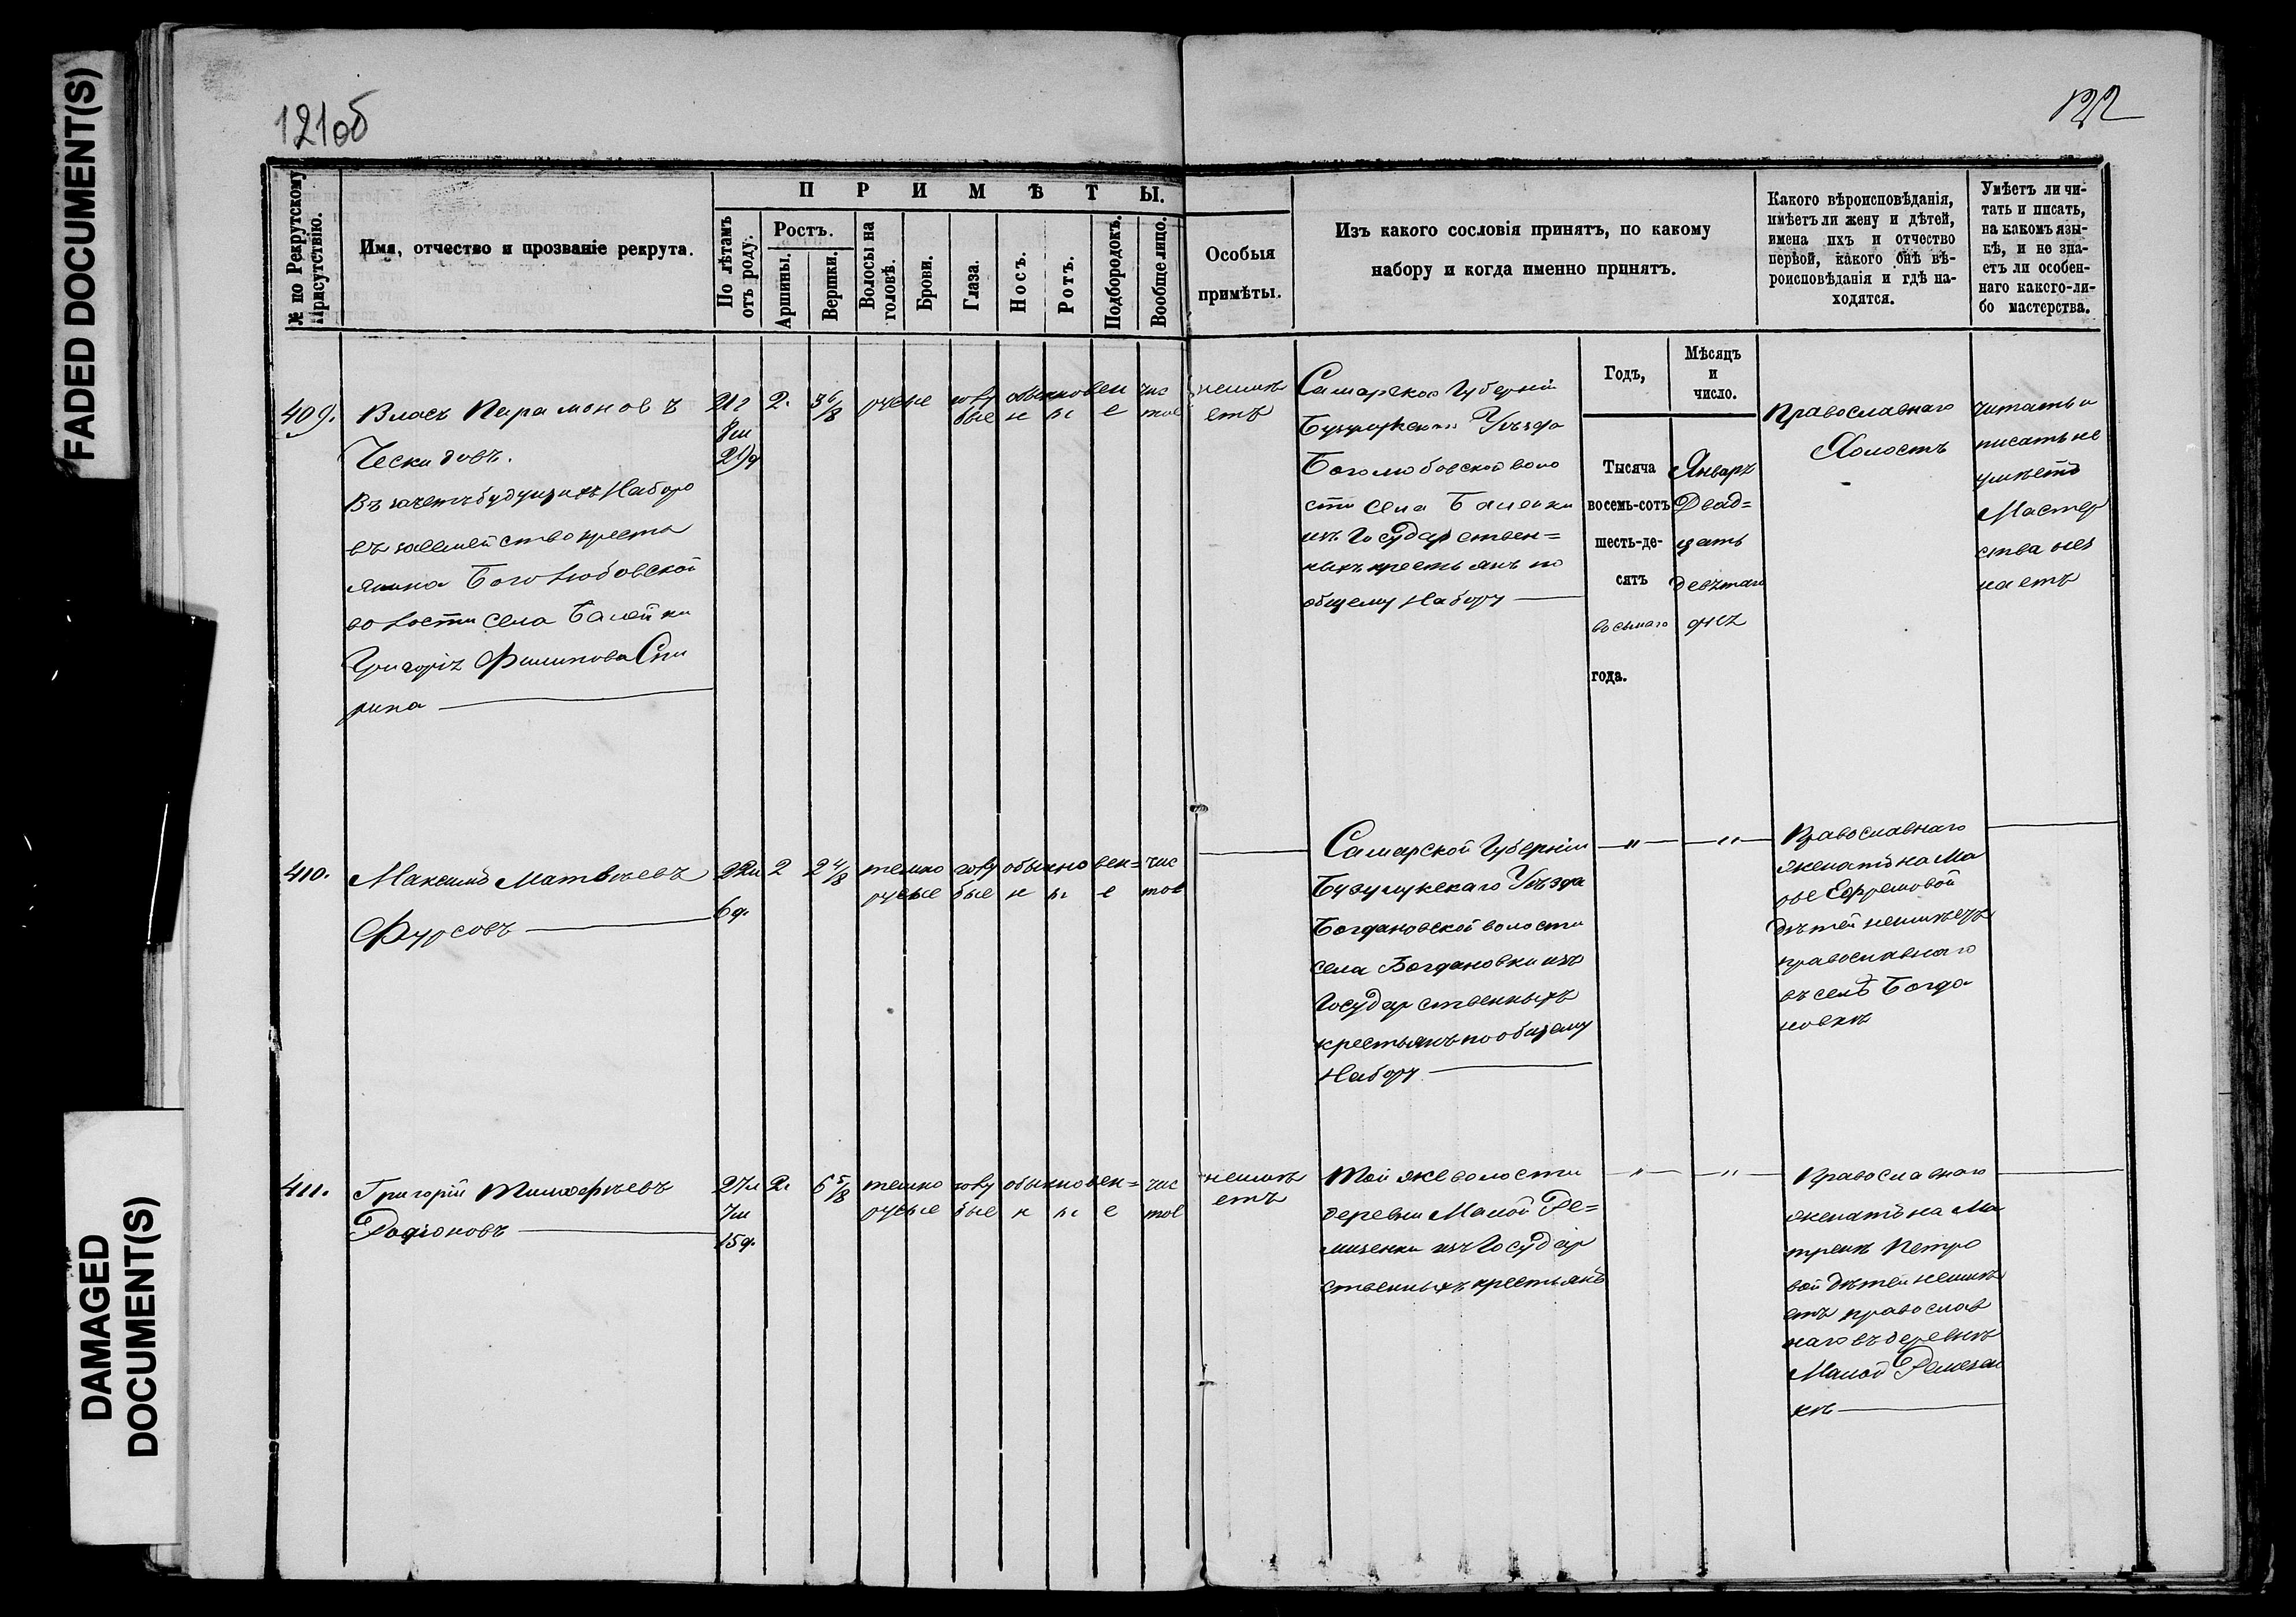 FADED DOCUMENT(S)
DAMAGED
DOCUMENT(S)
121об
122
№ по Рекрутскому
Присутствію.
Имя, отчество и прозваніе рекрута.
ПРИМѢТЫ.
По лѣтамъ
отъ роду.
Ростъ.
Аршины.
Вершки.
Волосы на
головѣ.
Брови.
Глаза.
Носъ.
Ротъ.
Подбородокъ.
Вообще лицо.
Особыя
примѣты.
Изъ какого сословія принятъ, по какому
набору и когда именно принятъ.
Какого вѣроисповѣданія,
имѣетъ ли жену и дѣтей,
имена ихъ и отчество
первой, какого онѣ вѣ-
роисповѣданія и гдѣ на-
ходятся.
Умѣетъ ли чи-
тать и писать,
на какомъ язы-
кѣ, и не зна-
етъ ли особен-
наго какого-ли-
бо мастерства.
409.
Власъ Парамоновъ
Ческидовъ.
Въ зачетъ будущихъ Наборо
въ за семейство кресть
янина Боголюбовской
волости села Балейки
Григорія Филипова Спи
рина
21г
8м
29д
2.
3 6/8
русые
голу
бые
обыкновен
н ы е
чис
тое
неимѣ
етъ
Самарской Губерніи
Бузулукскаго Уѣзда
Боголюбовской воло
сти села Балейки
изъ Государствен=
ныхъ крестьянъ по
общему Набору
Годъ,
Тысяча
восемь-сотъ
шесть-де-
сятъ
восьмаго
года.
Мѣсяцъ
и
число.
Январь
Двад=
цать
девятаго
дня
Православнаго
Холостъ
читать и
писать не
умѣетъ
Мастер
ства не з
наетъ
410.
Максимъ Матвѣевъ
Фурсовъ
22л
6д.
2
2 4/8
темно
русые
голу
бые
обыкновен=
н ы е
чис
тое
Самарской Губерніи
Бузулукскаго Уѣзда
Богдановской волости
села Богдановки изъ
Государственныхъ
крестьянъ по общему
Набору
"
"
Православнаго
женатъ на Ма
рье Ефремовой
дѣтей неимѣетъ
православнаго
въ селѣ Богда
новкѣ
411.
Григорій Тимофѣевъ
Родіоновъ
27л
7м
15д.
2.
6 5/8
темно
русые
голу
бые
обыкновен=
н ы е
чис
тое
неимѣ
етъ
Той же волости
деревни Малой Ре=
мизенки изъ Государ
ственныхъ крестьянъ
"
"
Православнаго
женатъ на Ма
тренѣ Петро
вой дѣтей неимѣ
етъ православ
наго въ деревнѣ
Малой Ремезен
кѣ